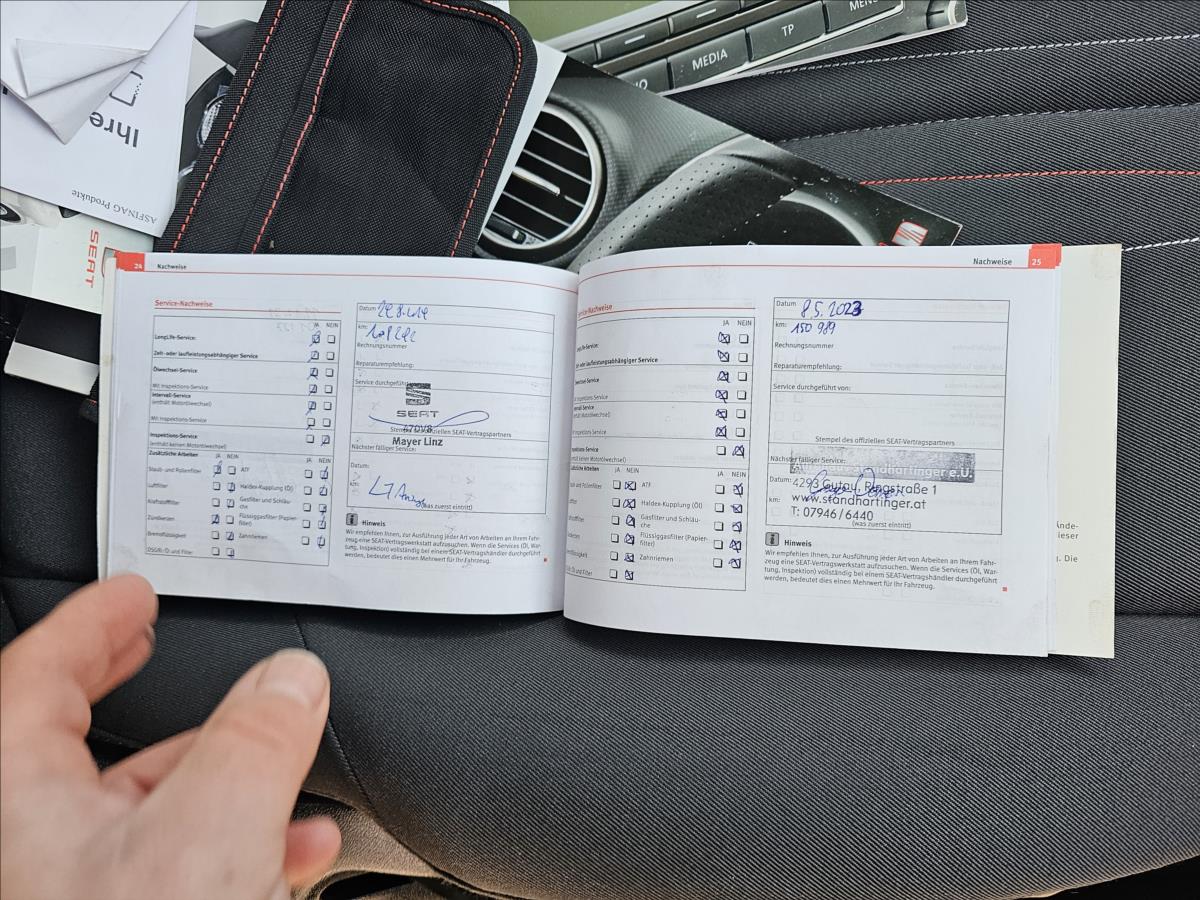 MENU
TP
MEDIA
Ihre
ASFINAG Produkte
SEAT
24 Nachweise
Service-Nachweise
JA NEIN
LongLife-Service:
Zeit- oder laufleistungsabhängiger Service
Ölwechsel-Service
Mit Inspektions-Service
Intervall-Service
(enthält Motorölwechsel)
Mit Inspektions-Service
Inspektions-Service
(enthält keinen Motorölwechsel)
Zusätzliche Arbeiten JA NEIN JA NEIN
Staub- und Pollenfilter ATF
Luftfilter Haldex-Kupplung (Öl)
Kraftstofffilter Gasfilter und Schläu-
che
Zündkerzen Flüssiggasfilter (Papier-
filter)
Bremsflüssigkeit Zahnriemen
DSG®: Öl und Filter
Datum
km:
Rechnungsnummer
Reparaturempfehlung:
Service durchgeführt
SEAT
Stempel des offiziellen SEAT-Vertragspartners
Mayer Linz
Nächster fälliger Service:
Datum:
km:
(was zuerst eintritt)
Hinweis
Wir empfehlen Ihnen, zur Ausführung jeder Art von Arbeiten an Ihrem Fahr-
zeug eine SEAT-Vertragswerkstatt aufzusuchen. Wenn die Services (Öl, War-
tung, Inspektion) vollständig bei einem SEAT-Vertragshändler durchgeführt
werden, bedeutet dies einen Mehrwert für Ihr Fahrzeug.
Nachweise 25
Service-Nachweise
JA NEIN
LongLife-Service:
Zeit- oder laufleistungsabhängiger Service
Ölwechsel-Service
Mit Inspektions-Service
Intervall-Service
(enthält Motorölwechsel)
Mit Inspektions-Service
Inspektions-Service
(enthält keinen Motorölwechsel)
Zusätzliche Arbeiten JA NEIN JA NEIN
Staub- und Pollenfilter ATF
Luftfilter Haldex-Kupplung (Öl)
Kraftstofffilter Gasfilter und Schläu-
che
Zündkerzen Flüssiggasfilter (Papier-
filter)
Bremsflüssigkeit Zahnriemen
DSG®: Öl und Filter
Datum 8.5.2023
km: 150 989
Rechnungsnummer
Reparaturempfehlung:
Service durchgeführt von:
Stempel des offiziellen SEAT-Vertragspartners
Nächster fälliger Service:
Standhartinger e.U.
Datum: 4293 Gutau, Ringstraße 1
km: www.standhartinger.at
T: 07946/6440
(was zuerst eintritt)
Hinweis
Wir empfehlen Ihnen, zur Ausführung jeder Art von Arbeiten an Ihrem Fahr-
zeug eine SEAT-Vertragswerkstatt aufzusuchen. Wenn die Services (Öl, War-
tung, Inspektion) vollständig bei einem SEAT-Vertragshändler durchgeführt
werden, bedeutet dies einen Mehrwert für Ihr Fahrzeug.
Ände-
ieser
. Die